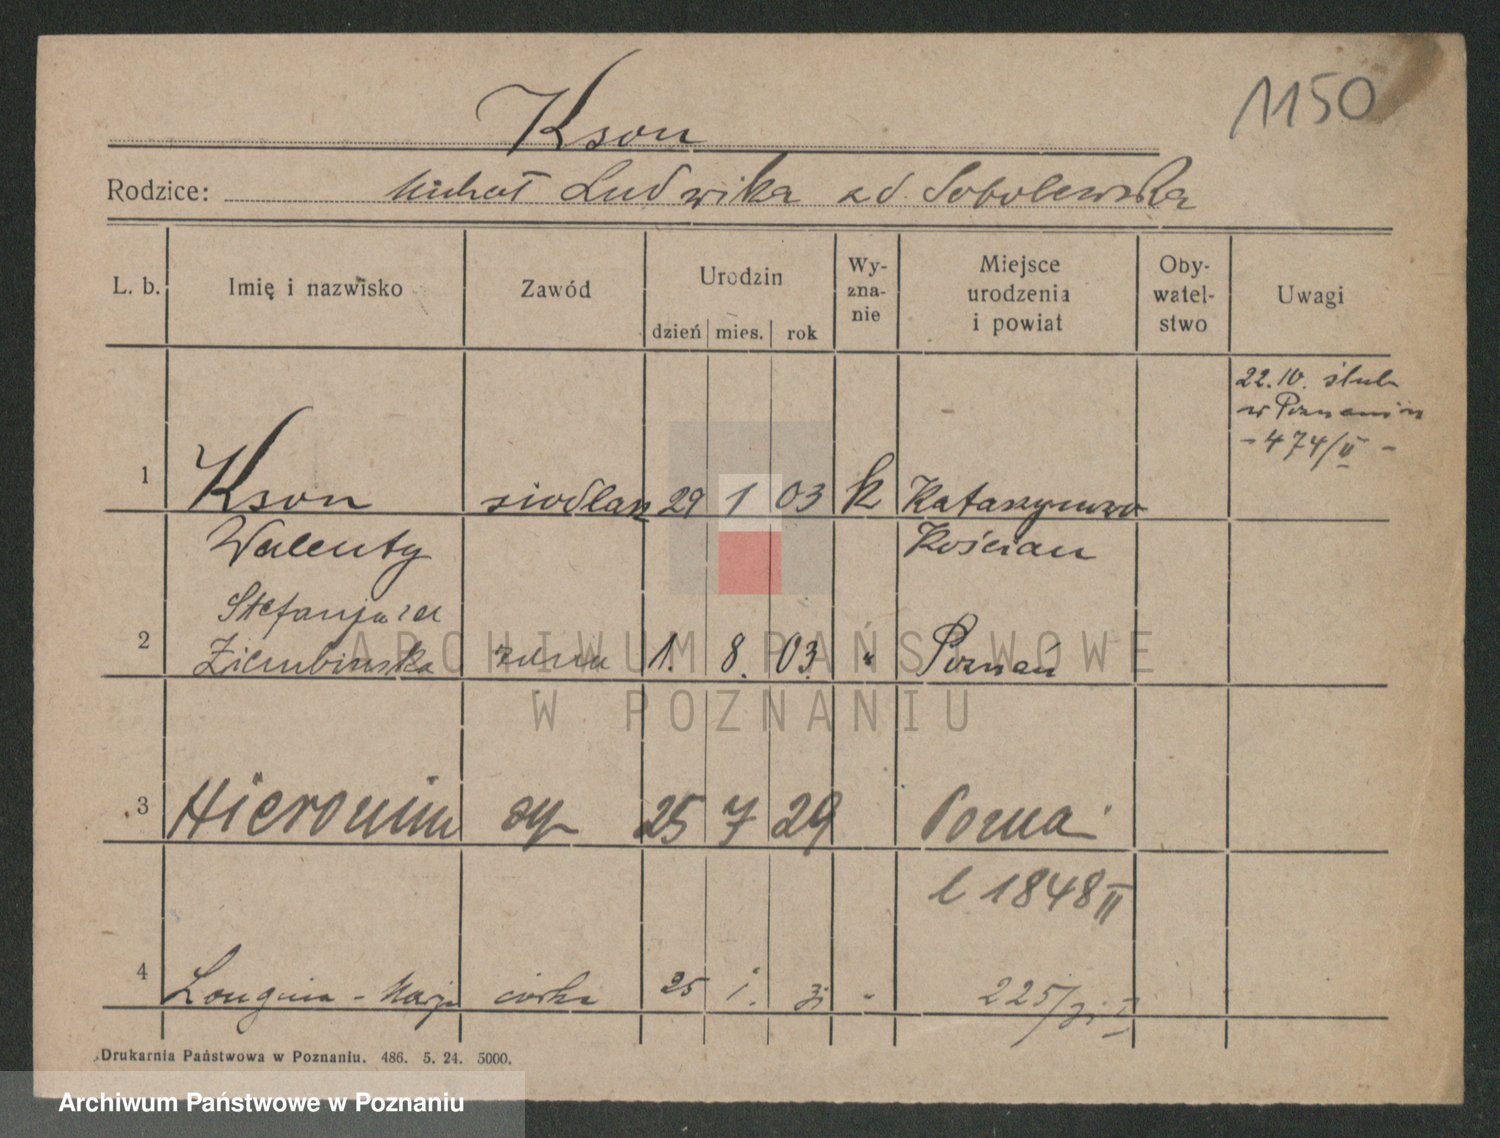 1150
Kson
Rodzice: Michał Ludwika zd. Sobolewska
L. b.
Imię i nazwisko
Zawód
Urodzin
dzień mies. rok
Wy-
zna-
nie
Miejsce
urodzenia
i powiat
Oby-
watel-
stwo
Uwagi
22.10. ślub
w Poznaniu
- 474/II -
1 Kson siodlarz 29 1 03 k Katarzynowo
Walenty Kościan
Stefanja zd
2 Ziembinska żona 1. 8. 03. " Poznań
3 Hieronim syn 25 7 29 Pozna
l 1848 II
4 Longina - Marja córka 25 1. 31 "
225/31 I
Drukarnia Państwowa w Poznaniu. 486. 5. 24. 5000.
ARCHIWUM PAŃSTWOWE
W POZNANIU
Archiwum Państwowe w Poznaniu